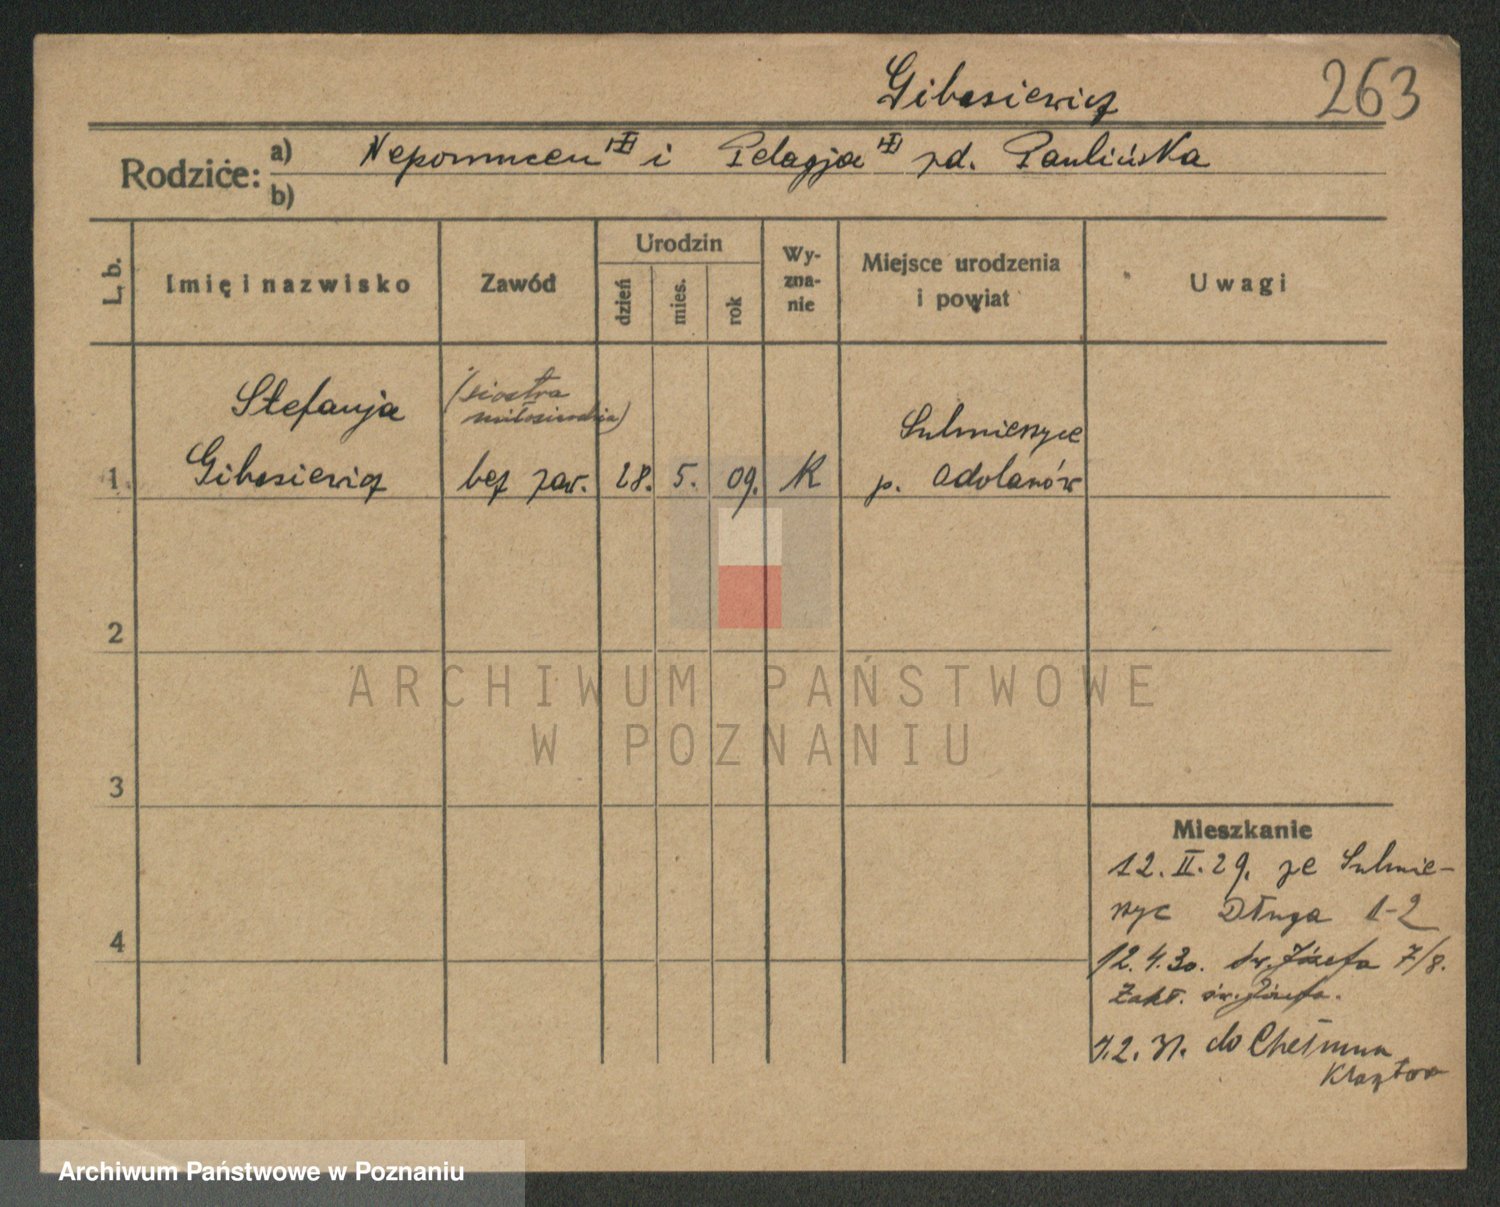 Gibasiewicz 263
Rodzice: a) Nepomucen i Pelagja zd. Paulińska
b)
L. b. Imię i nazwisko Zawód Urodzin dzień mies. rok Wy-zna-nie Miejsce urodzenia i powiat Uwagi
Stefanja (siostra
miłosierdzia) Sulmierzyce
1. Gibasiewicz bez zaw. 28. 5. 09. K p. Odolanów
2
ARCHIWUM PAŃSTWOWE
W POZNANIU
3
Mieszkanie
12. II. 29. ze Sulmie-
rzyc Długa 1-2
4
12.4.30. św. Józefa 7/8.
Zakł. św. Józefa.
7.2.31. do Chełmna
Klasztor
Archiwum Państwowe w Poznaniu